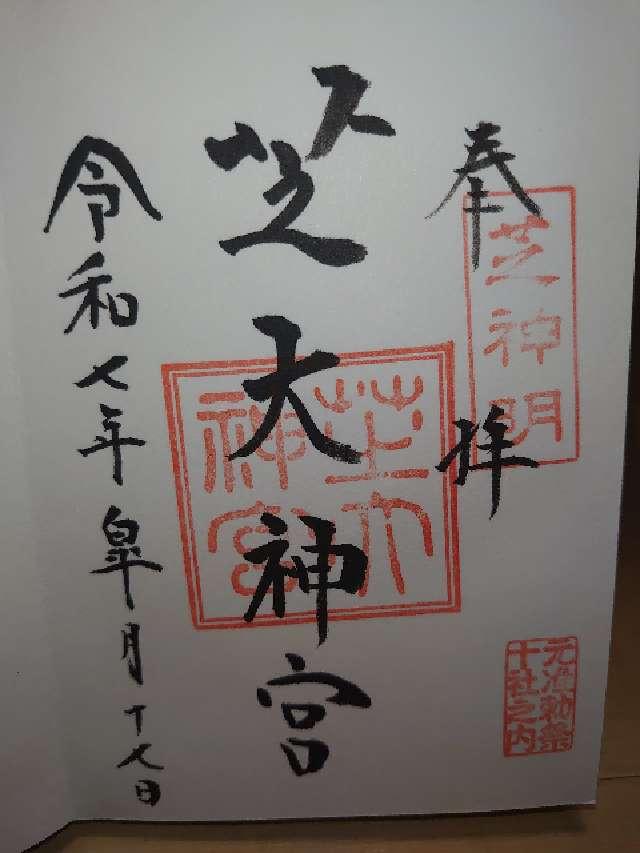 奉拝
芝神明
元准勅祭
十社之内
芝大神宮
芝大
神宮
令和七年皐月十七日